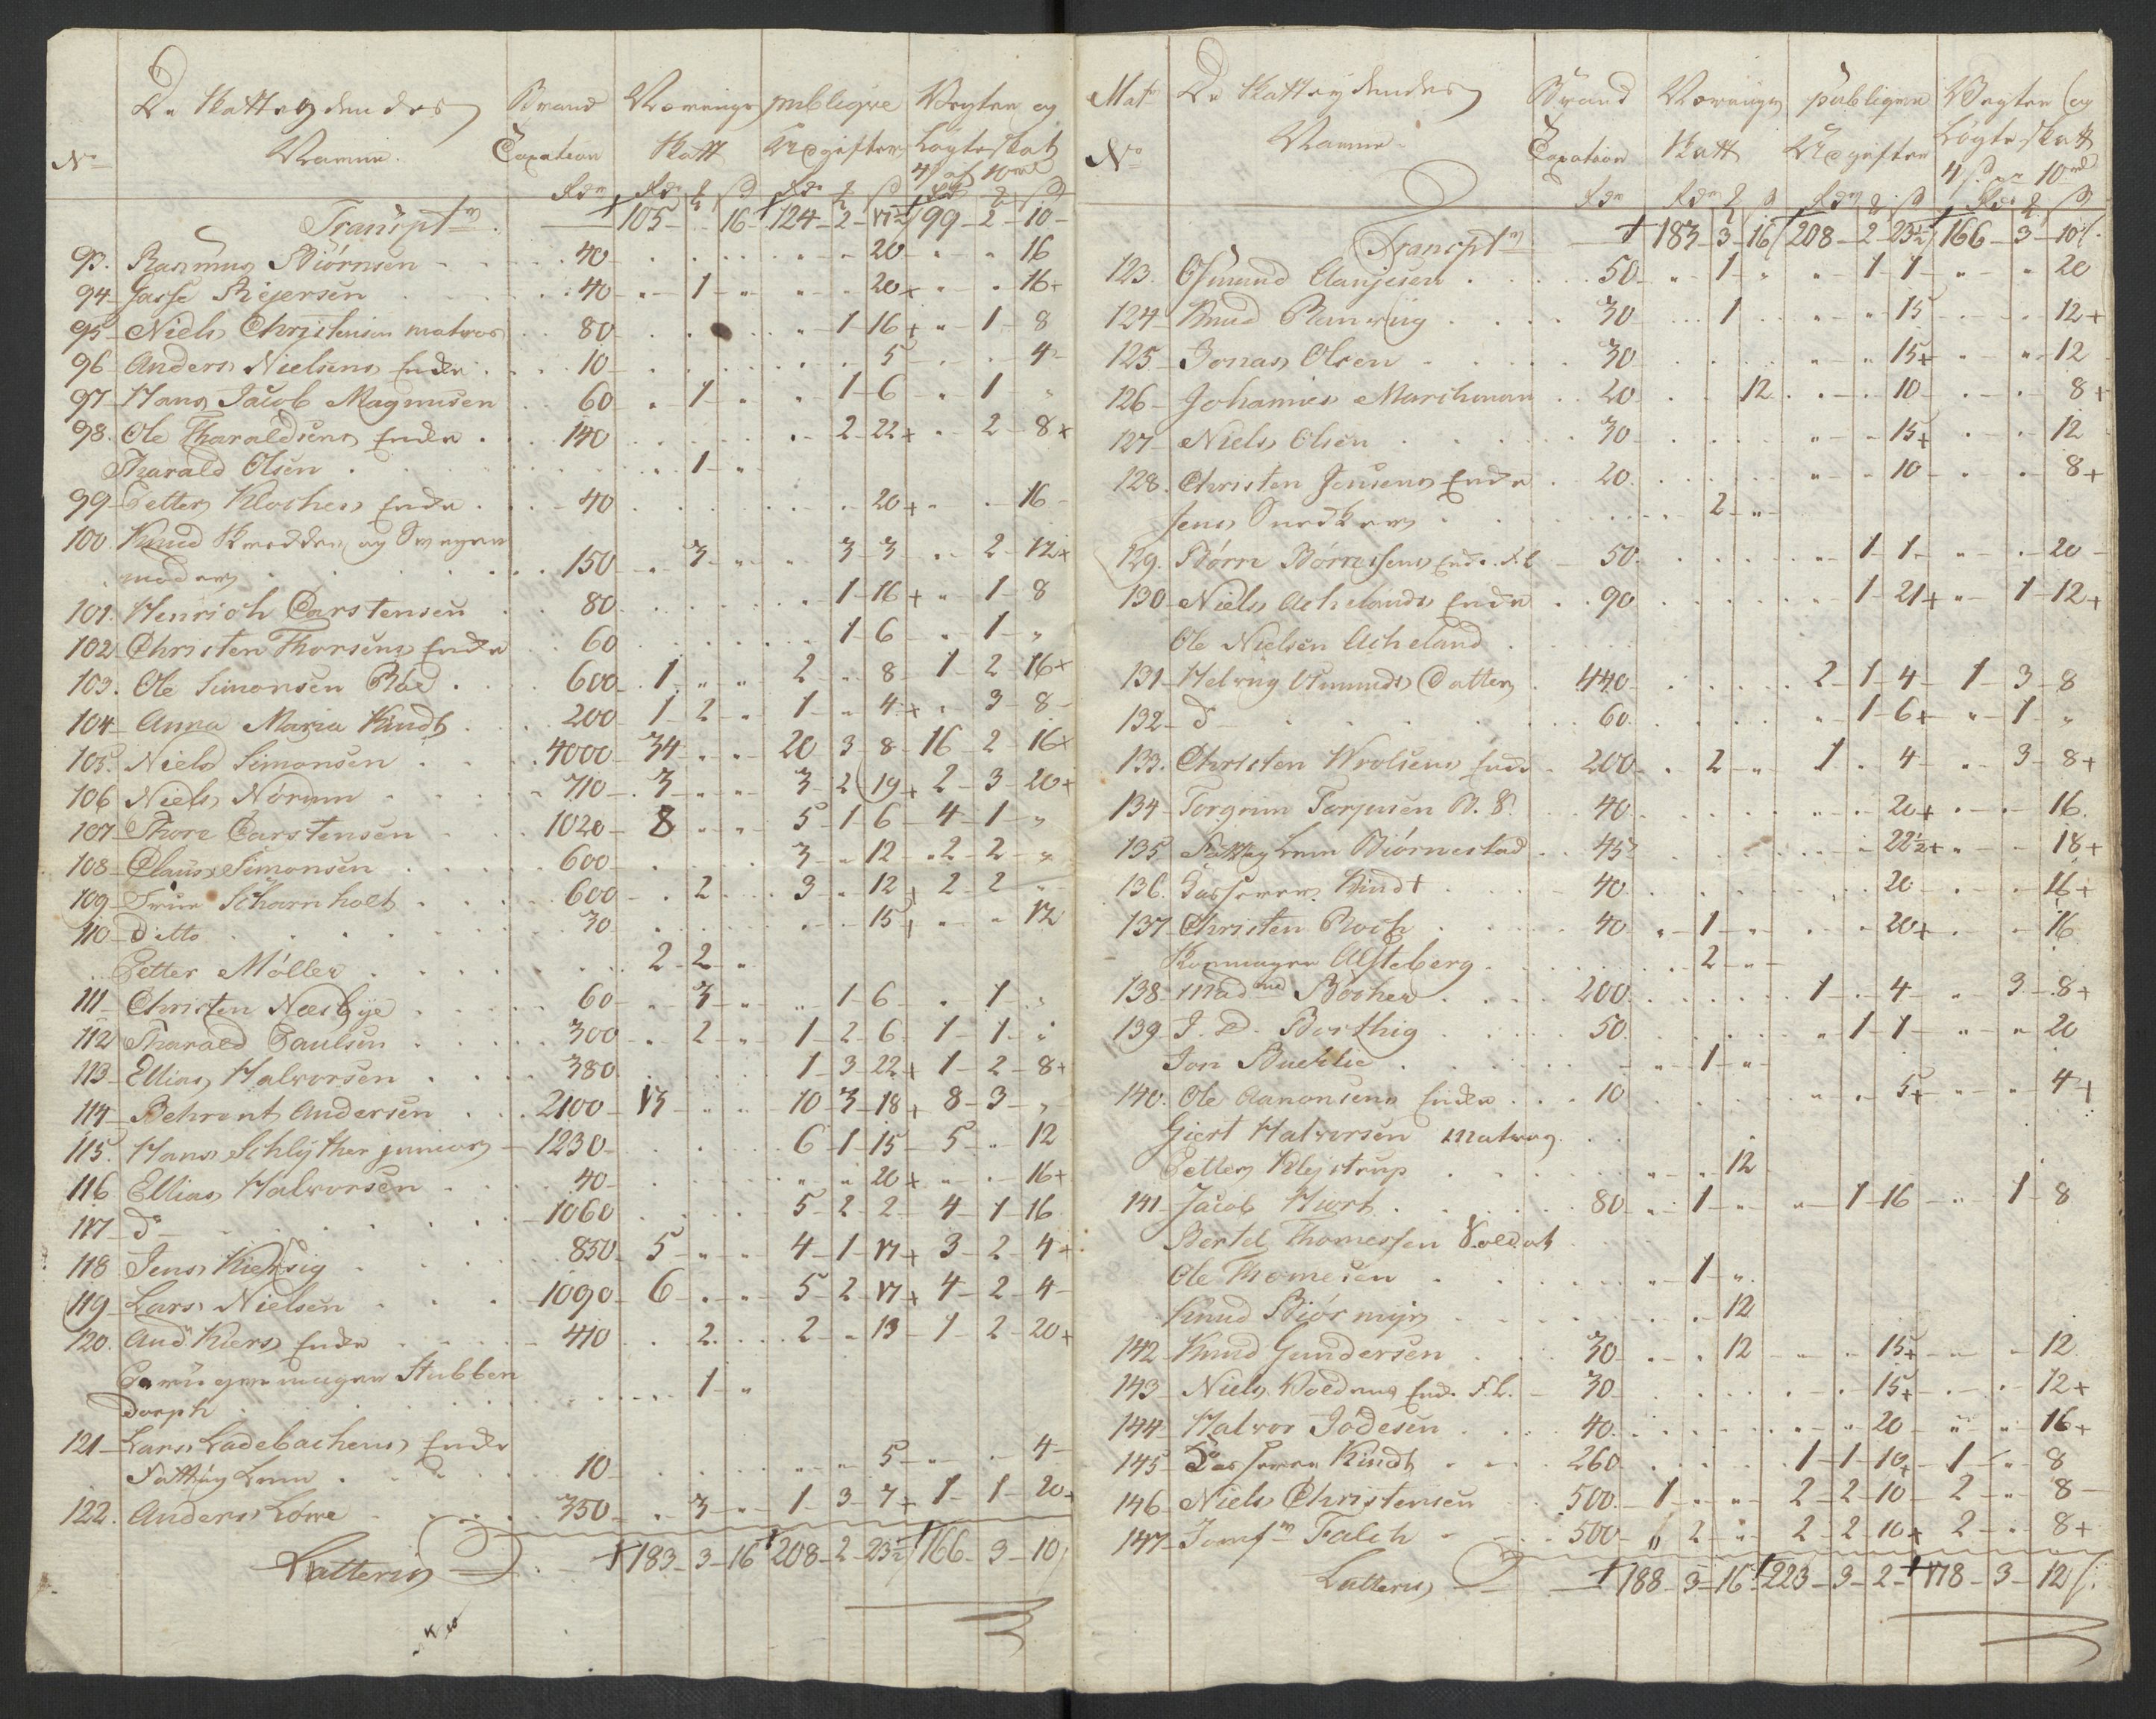 De Skatteydendes Brand Nærings publique Vegter og
No Nafne. Taxation Skatt Udgifter Løgte Skat
4 s af 10 rd
Rdr Rdr s Rdr s Rdr s
Transpt 105 - 16 124 - 2 - 17½ 99 - 2 - 10
93. Rasmus Biörnsen 40 20 16
94 Jasse Reyersen 40 1 20 16
95 Niels Christensen matros 80 1 16 1 8
96 Anders Nielsens Enke 10 5 4
97 Hans Jacob Magnusen 60 1 1 6 1
98. Ole Tharaldsens Enke 140 2 22 2 8
Tharald Olsen 1
99 Petter Klochers Enke 40 20 16
100. Knud Skredder og Svigermoder 150 3 3 3 2 12
101. Henrich Carstensen 80 1 16 1 8
102 Christen Thorsens Enke 60 1 6 1
103. Ole Simonsen Röe 600 1 2 8 1 2 16
104 Anna Maria Kindt 200 1 2 1 4 3 8
105. Niels Simonsen 4000 34 20 3 8 16 2 16
106 Niels Nörum 710 3 3 2 19 2 3 20
107 Thore Carstensen 1020 8 5 1 6 4 1
108 Claus Simonsen 600 3 12 2 2
109 Frue Scharnholt 600 2 3 12 2 2
110 Ditto 30 15 12
Petter Möller 2 2
111 Christen Næsbye 60 3 1 6 1
112 Tharald Paulsen 300 2 1 2 6 1 1
113 Ellias Halvorsen 380 1 3 22 1 2 8
114 Behrent Andersen 2100 13 10 3 18 8 3
115. Hans Schlyther junior 1230 6 1 15 5 12
116 Ellias Halvorsen 40 20 16
117 do 1060 5 2 2 4 1 16
118 Jens Kielsig 850 5 4 1 17 3 2 4
119 Lars Nielsen 1090 6 5 2 17 4 2 4
120. And. Kiers Enke 410 2 2 13 1 2 20
Stubben
dorph 1
121 Lars Ladebachens Enke
Fattig Lem 10 5 4
122. Anders Löwe 350 3 1 3 7 1 1 20
Latteris 183 - 3 - 16 208 - 2 - 23½ 166 - 3 - 10
Mat De Skatteydendes Brand Nærings publique Vegter og
No Nafne Taxation Skatt Udgifter Løgte Skatt
4 s pr 10 rd
Rdr Rdr s Rdr s Rdr s
Transpt 183 - 3 16 208 - 2 - 23½ 166 - 3 - 10
123. Osmund Aanjesen 50 1 1 1 20
124 Knud 30 1 15 12
125 Jonas Olsen 30 15 12
126 Johannes Marchman 20 12 10 8
127 Niels Olsen 30 15 12
128. Christen Jensens Enke 20 10 8
Jens Snedker 2
129. Börre Börresens Enke F.L. 50 1 1 20
130 Niels Achelands Enke 90 1 21 1 12
Ole Nielsen Acheland
131 Helvig Amunds Datter 440 2 1 4 1 3 8
132 do 60 1 6 1
133. Christen Wrolsens Enke 200 2 1 4 3 8
134 Torgrim Torjusen B. S. 40 20 16
135 Fattig Lem Biörnestad 45 22½ 18
136. Kindt 40 20 16
137 Christen Roch 40 1 20 16
Alsteberg 2
138 Madme Böcher 200 1 4 3 8
139 J. D. Berthig 50 1 1 20
Jon Buchlie 1
140. Ole Aanonsens Enke 10 5 4
Giert Halvorsen Matros
Petter Klejstrup 12
141 Jacob Hiort 80 1 1 16 1 8
Bertel Thomessen Soldat
Ole Thomesen 1
Knud Biörmyr 12
142 Knud Gundersen 30 12 15 12
143 Niels Enke F.L. 30 15 12
144 Halvor Jodesen 40 20 16
145 Kindt 260 1 1 10 1 8
146 Niels Christensen 500 1 2 2 10 2 8
147 Jomf. Falch 500 2 2 2 10 2 8
Latteris 188 - 3 - 16 223 - 3 - 2 178 - 3 - 12